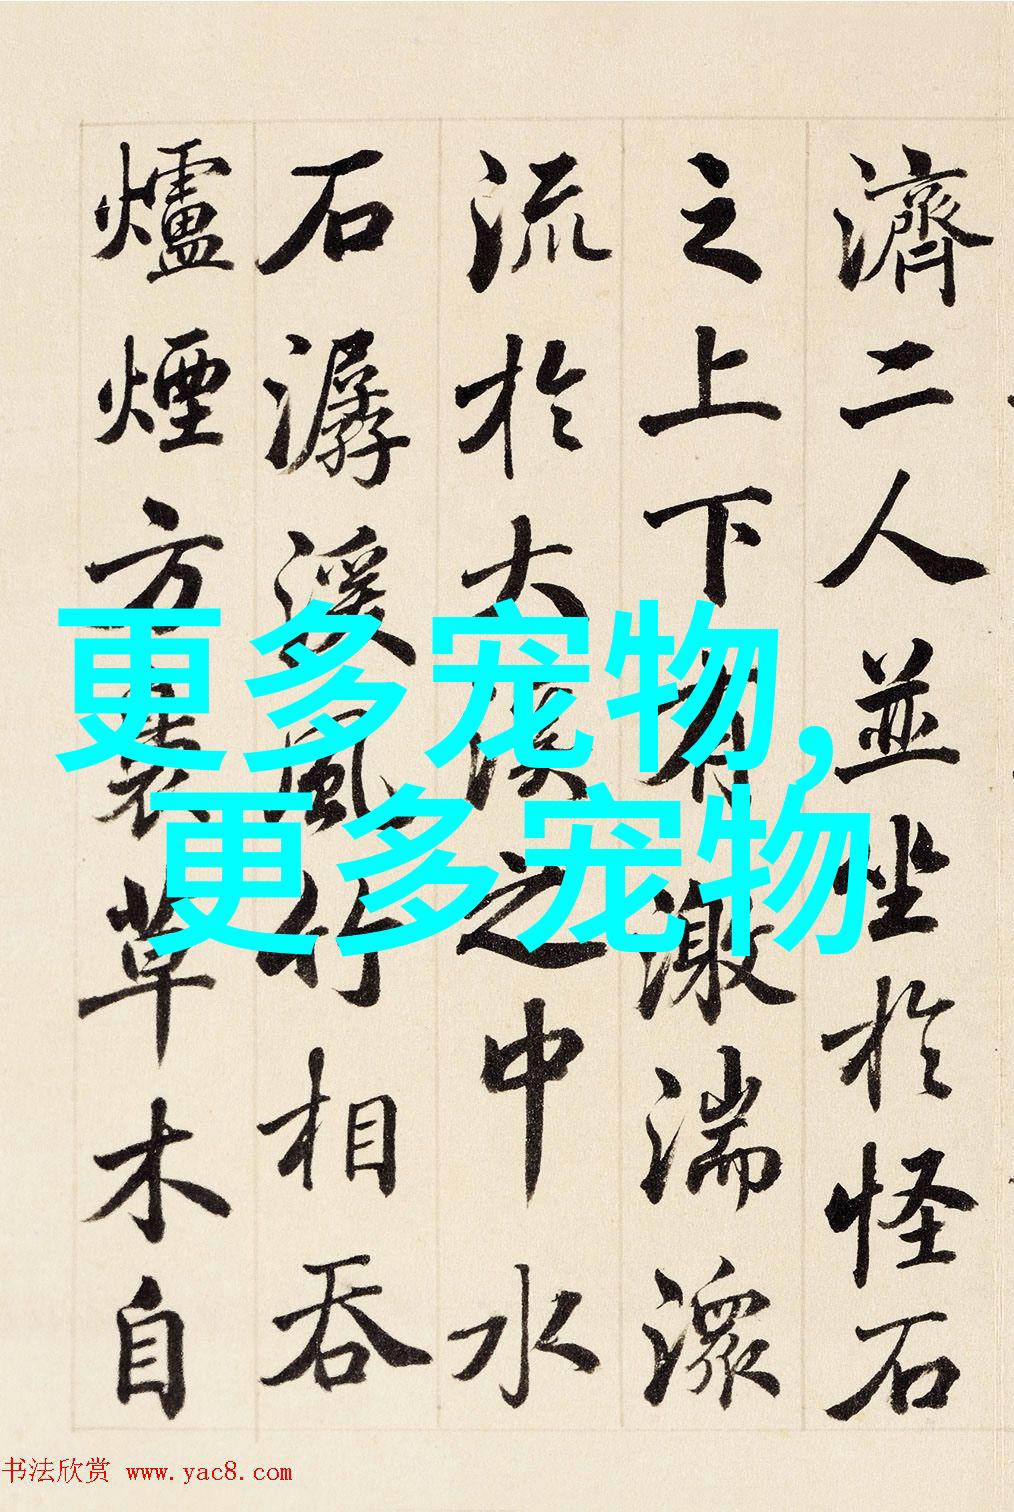 濟二人並坐於怪石
之上下有激湍潨
流於大溪之中水
石潺湲風竹相吞
爐煙方裊草木自
更多宠物,
更多宠物
书法欣赏 www.yac8.com